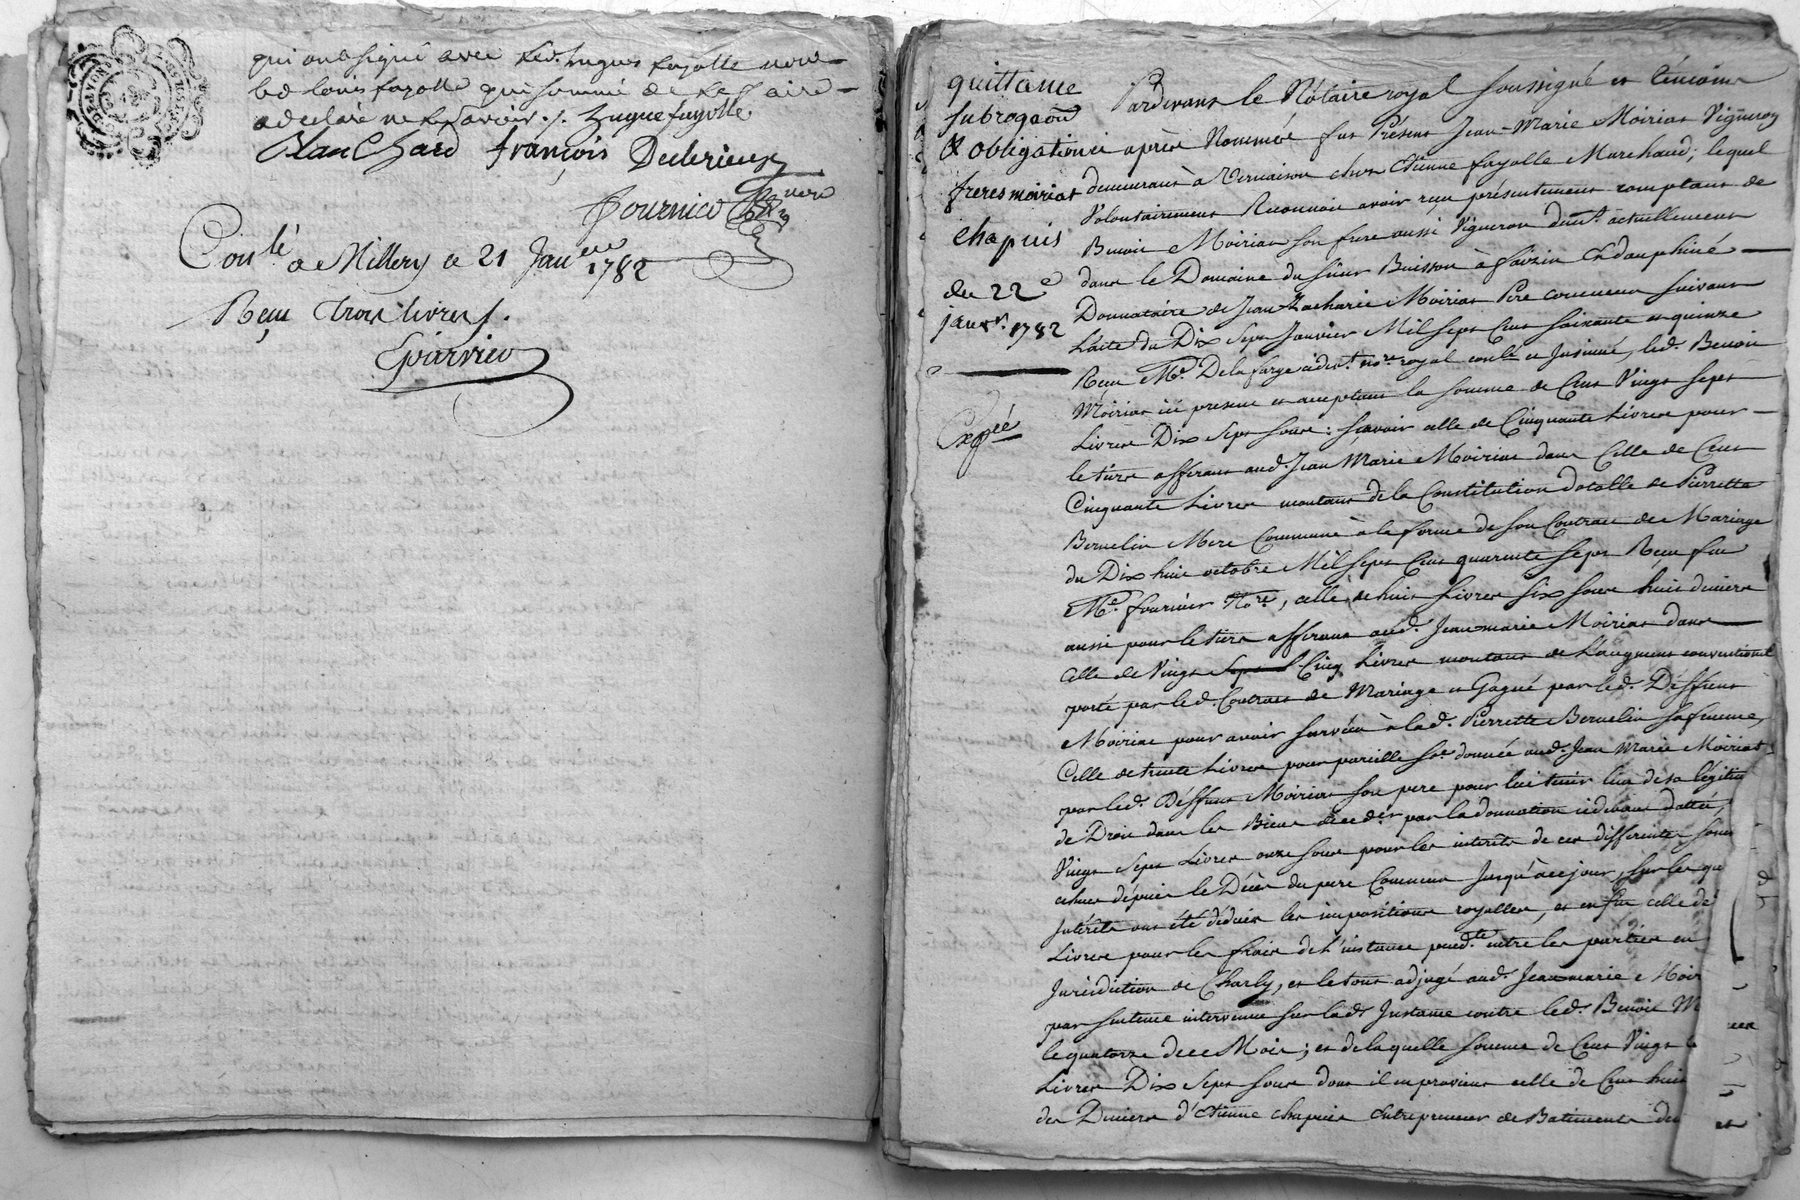 qui ont signé avec led. hugues fayolle non
led louis fayolle qui sommé de le faire
a déclaré ne le savoir ./. hugue fayolle
Blanchard françois Deverieux
Conlé a Millery ce 21 Janer 1782
Reçu trois livres /.
quittance
subrogaon
& obligation
freres moiriat
chapuis
du 22e
janvr. 1782
Expée
Pardevant le Notaire royal soussigné et témoins
après Nommés fut Présent Jean-Marie Moiriat Vigneron
demeurant à Vernaison chez Etienne fayolle Marchand; lequel
Volontairement Reconnoit avoir reçu présentement comptant de
Benoit Moiriat son frere aussi Vigneron demt. actuellement
dans le Domaine du sieur Buisson à faizin en dauphiné
Donnataire de Jean Zacharie Moiriat Pere commun suivant
L'acte du Dix Sept Janvier Mil Sept Cent Soixante et quinze
Reçu Me. Delafarge adit. nore royal conlé et Insinué, led. Benoit
Moiriat ici present et acceptant la somme de Cent Vingt Sept
Livres Dix Sept Sous: sçavoir celle de Cinquante Livres pour
le tiers afferant aud. Jean Marie Moiriat dans Celle de Cent
Cinquante Livres montant de la Constitution dotalle de Pierrette
Bernelin Mere Commune à la forme de son Contrat de Mariage
du Dix huit octobre Mil Sept Cent quarente Sept Reçu par
Me. fournier Nore, celle de huit Livres Six sous huit deniers
aussi pour le tiers afferant aud. Jean marie Moiriat dans
celle de Vingt Cinq Livres montant de L'augment conventionel
porté par led. Contrat de Mariage et Gagné par led. Déffunt
Moiriat pour avoir survécu à lad. Pierrette Bernelin sa femme,
Celle de trente Livres pour pareille se. donnée aud. Jean Marie Moiriat
par led. Deffunt Moiriat son pere pour lui tenir lieu de sa légitime
de Droit dans les Biens par la donnation cidevant dattée,
Vingt Sept Livres onze sous pour les interêts de ces differentes
echus dépuis le Décès du pere Commun Jusqu'à ce jour, sur les
Intérêts ont été déduits les impositions royalles, et enfin celle de
Livres pour les frais de l'instance pendte. entre les parties en
Jurisdiction de Charly, et le tout adjugé aud. Jean marie
par sentence intervenue sur lad. Instance contre led. Benoit
le quatorze de ce Mois; et de laquelle somme de Cent Vingt
Livres Dix Sept sous dont il en provient celle de Cent huit
des Deniers d'Etienne chapuis Entrepreneur de Batiments